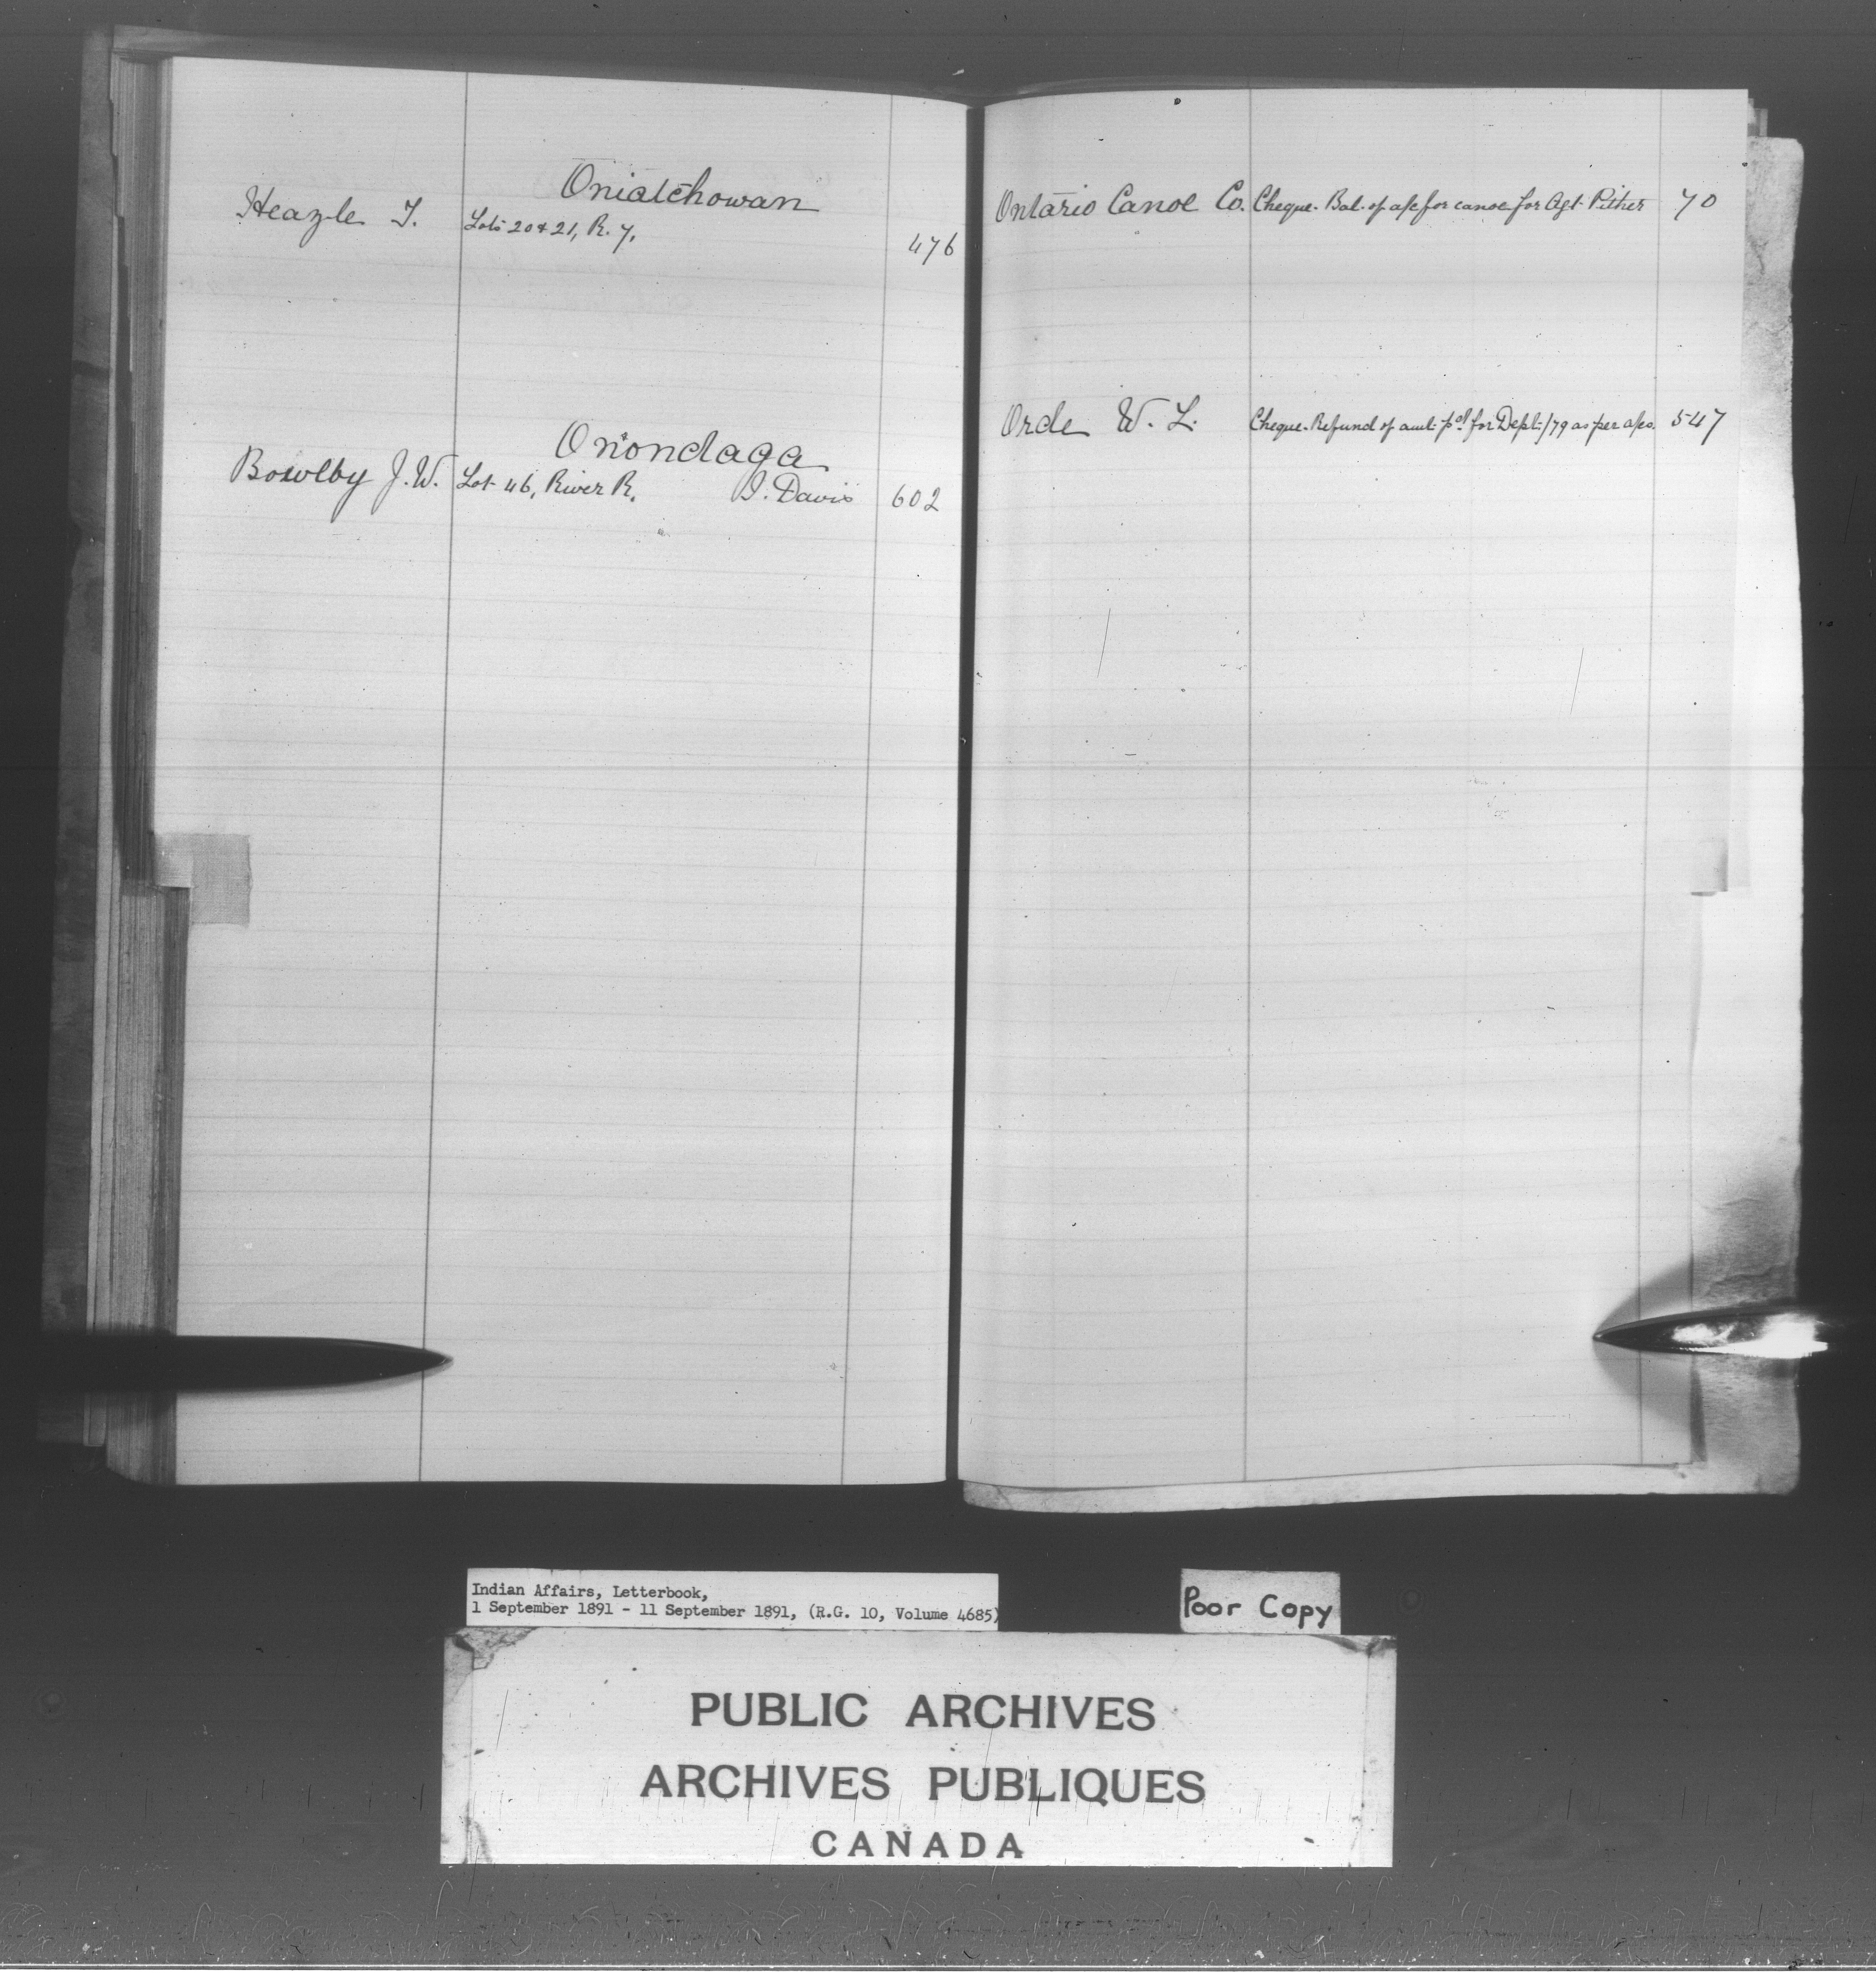 Oniatchowan
Heazle T. Lots 20 & 21, R. 7. 476
Onondaga
Bowlby J. W. Lot 46, River R. I. Davis 602
Ontario Canoe Co. Cheque. Bal. of a/c for canoe for Agt. Pither 70
Orde W. L. Cheque. Refund of amt. pd. for Dept. /79 as per a/cs. 547
Indian Affairs, Letterbook,
1 September 1891 - 11 September 1891, (R.G. 10, Volume 4685)
Poor Copy
PUBLIC ARCHIVES
ARCHIVES PUBLIQUES
CANADA